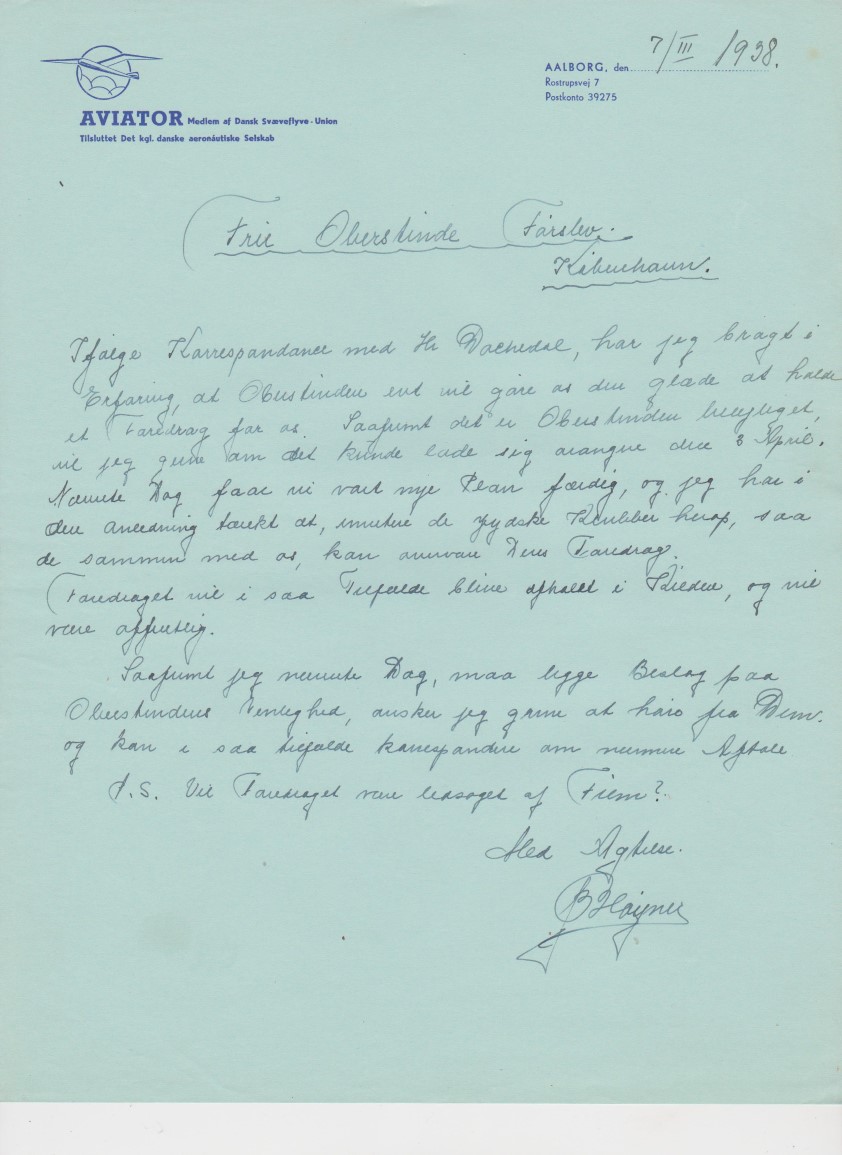 AALBORG, den 7/III 1938.
Rostrupsvej 7
Postkonto 39275
AVIATOR Medlem af Dansk Svæveflyve-Union
Tilsluttet Det kgl. danske aeronáutiske Selskab
Frue Oberstinde Førslev.
København.
Ifølge Korrespondance med Hr , har jeg bragt i
Erfaring, at Oberstinden evt vil gøre os den glæde at holde
et Foredrag for os. Saafremt det er Oberstinden belejliget,
vil jeg gerne om det kunde lade sig arangere den 3 April.
Nævnte Dag faar vi vort nye Plan færdig, og jeg har i
den anledning tænkt at, invitere de jydske Klubber herop, saa
de sammen med os, kan overvære Deres Foredrag.
Foredraget vil i saa Tilfælde blive afholdt i Kilden, og vil
være offentlig.
Saafremt jeg nævnte Dag, maa ligge Beslag paa
Oberstindens Venlighed, ønsker jeg gerne at høre fra Dem.
og kan i saa tilfælde korrespondere om nærmere Aftale
P.S. Vil Foredraget være ledsaget af Film?
Med Agtelse.